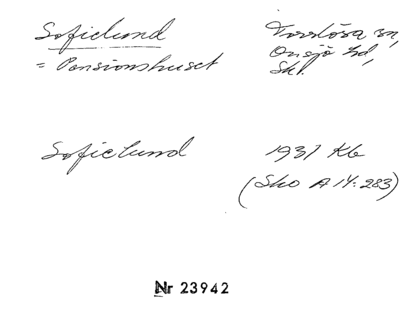 Sofielund
= Pensionshuset
Torrlösa sn,
Onsjö hd,
Sk.
Sofielund
1931 Kb
(Sko A 14:283)
Nr 23942